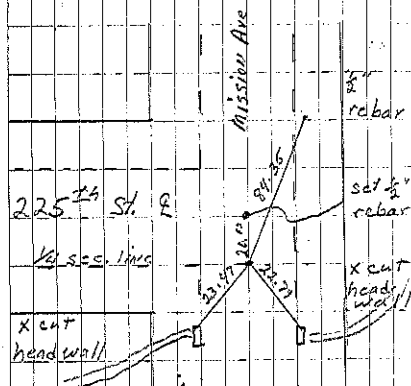 Mission Ave
1/2"
rebar
84.36
225th St. ℄
set 1/2"
rebar
20.0
1/4 sec. line
23.47
22.79
X cut
head
wall
X cut
headwall